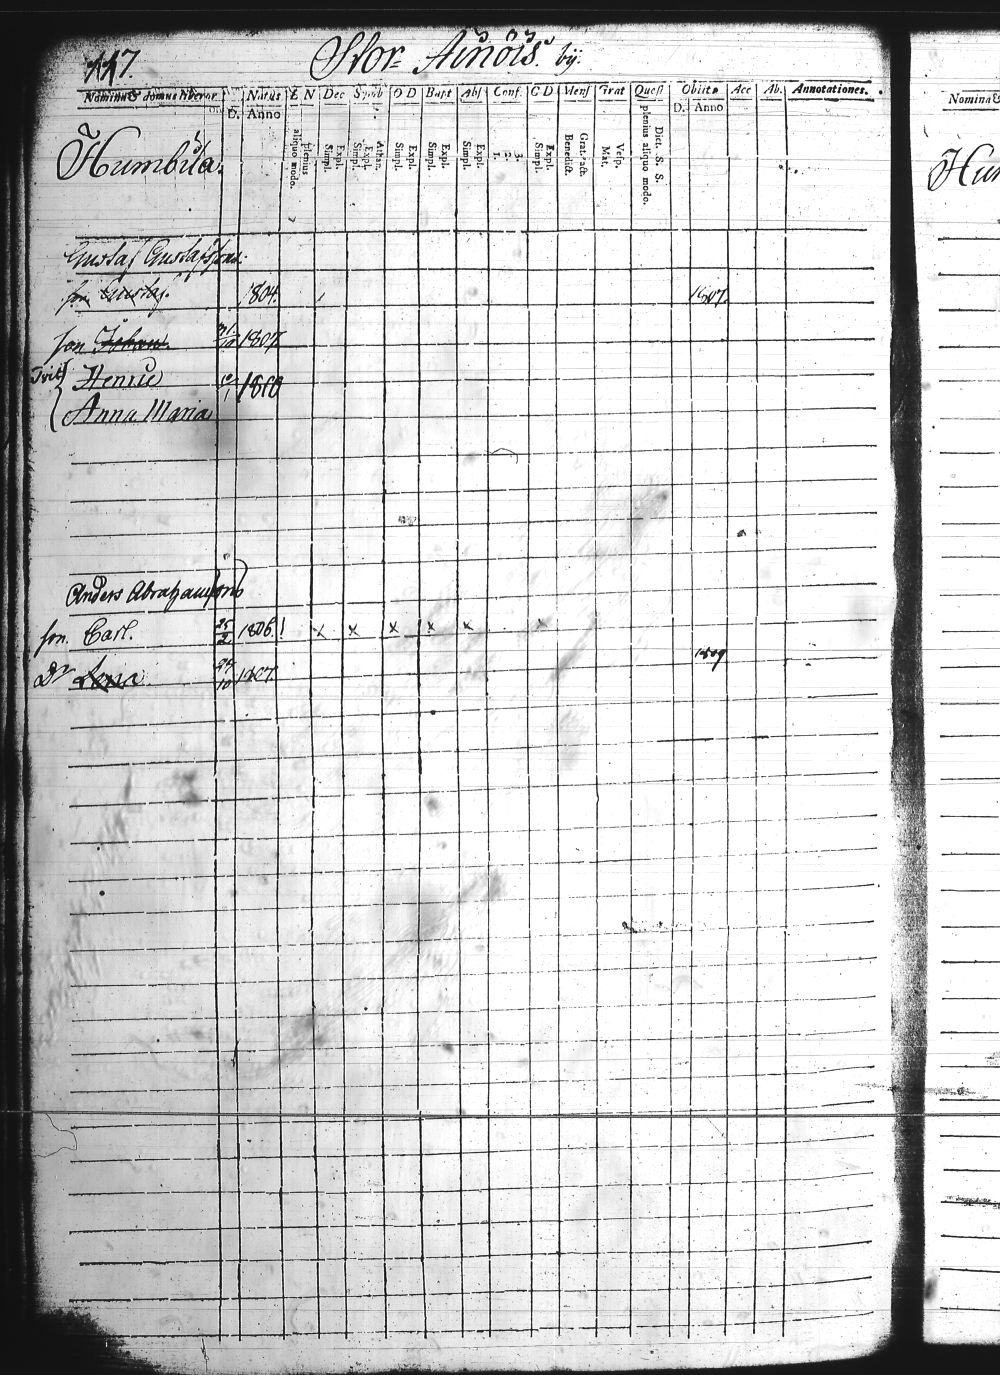 117.
Stor= Ainois by.
Nomina & domus liberor Natus E N Dec Symb O D Bapt Abs Conf. C D Mens Grat Quest Obiit Acc Ab. Annotationes.
D. Anno D. Anno
plenius aliquo modo. Expl. Simpl. Athan. Expl. Simpl. Expl. Simpl. Expl. Simpl. Expl. Simpl. 1. 2. 3. Expl. Simpl. Grat: act. Benedict. Vesp. Mat. Dict. S. S. plenius aliquo modo.
Humbila.
Gustaf Gustafssons
son Gustaf. 1804. 1807.
son Johan. 31/10 1807
Henric 10/1 1810
Anna Maria
Anders Abrahamsons
son. Carl. 25/2 1806 ! x x x x x x
1809
Dr Lena 1807.
Nomina &
Hum